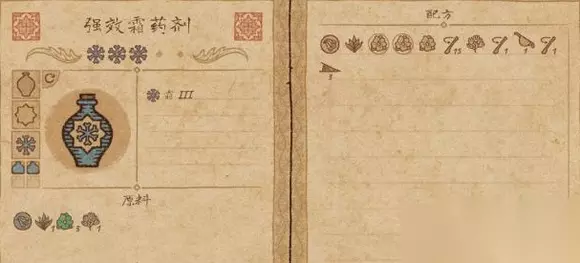 强效霜药剂
霜 III
原料
1 3 1
配方
15 1 1 1